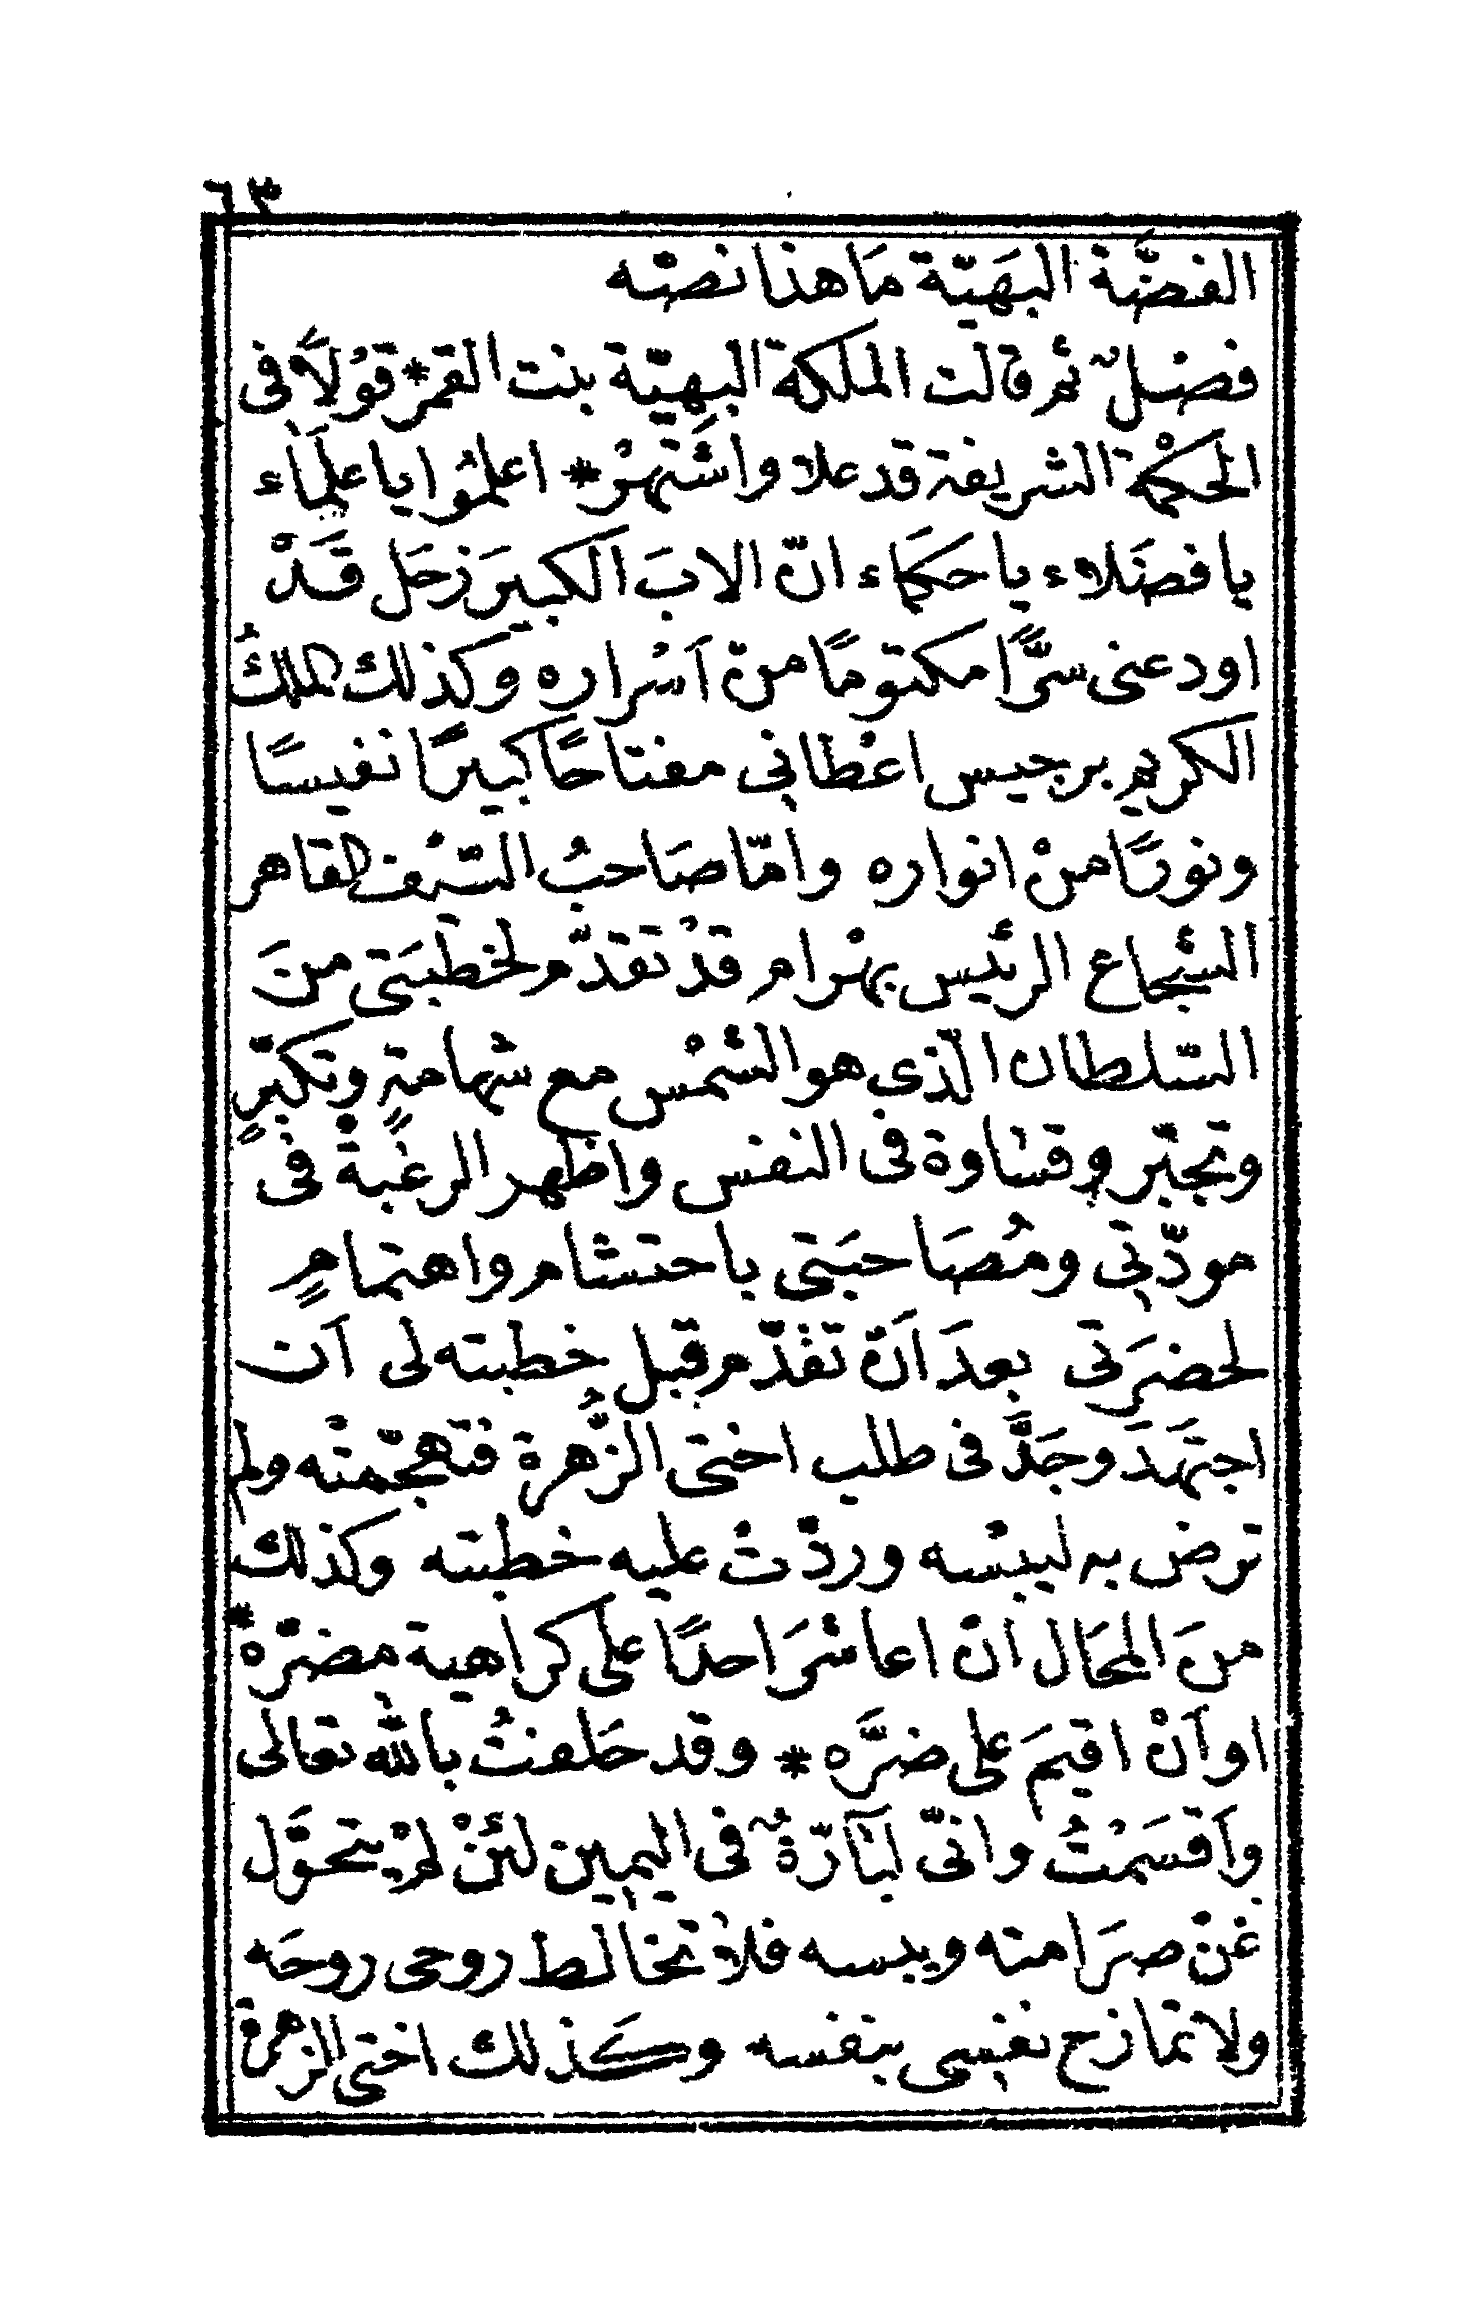 ٦٣
الفضَّة البَهَيّة مَا هذا نصّه
فصٌل ثم قالت الملكة البهيّة بنت القمر * قوْلاً فى
الحكمْة الشريفة قد علا واشَتهرْ * اعلمُوا يا علمَاء
يا فضَلاء يا حكمَاء انّ الابَ الكبيَر زحَل قَدْ
اودعنى سرًّا مكتومًا منْ اَسْراره وكذلك الملكُ
الكريم برجيس اعْطاني مفتاحًا كبيرًا نفيسًا
ونورًا منْ انواره وامّا صَاحبُ السّيْف القاهر
الشجاع الرئيس بهْرام قدْ تقدّم لخطبَتى منَ
السّلطان الّذي هو الشمْس مع شهامةٍ وتكبّرٍ
وتجبّر وقسَاوة فى النفس واظهر الرغْبة فى
مودّتي ومُصَاحبَتى باحتشام واهتمامٍ
لحضرَتي بعدَ اَنْ تقدّم قبل خطبته لى اَن
اجتهَدَ وجَدَّ فى طلب اختى الزُّهرة فتهجّمتْه ولم
ترض به ليبْسه وردّتْ عليه خطْبته وكذلك
منَ المحَال انْ اعاشرَ احدًا على كراهية مضرّة *
او اَنْ اقيمَ على ضرَّه * وقد حَلفتُ بالله تعالى
واَقسَمْتُ وانّى لبَآرّةٌ فى اليمين لئنْ لمْ يتحَوّل
عنْ صرَامته ويبسه فلا تخالط روحى روحَه
ولا تمازج نفسى بنفسه وكذلك اختى الزهرة